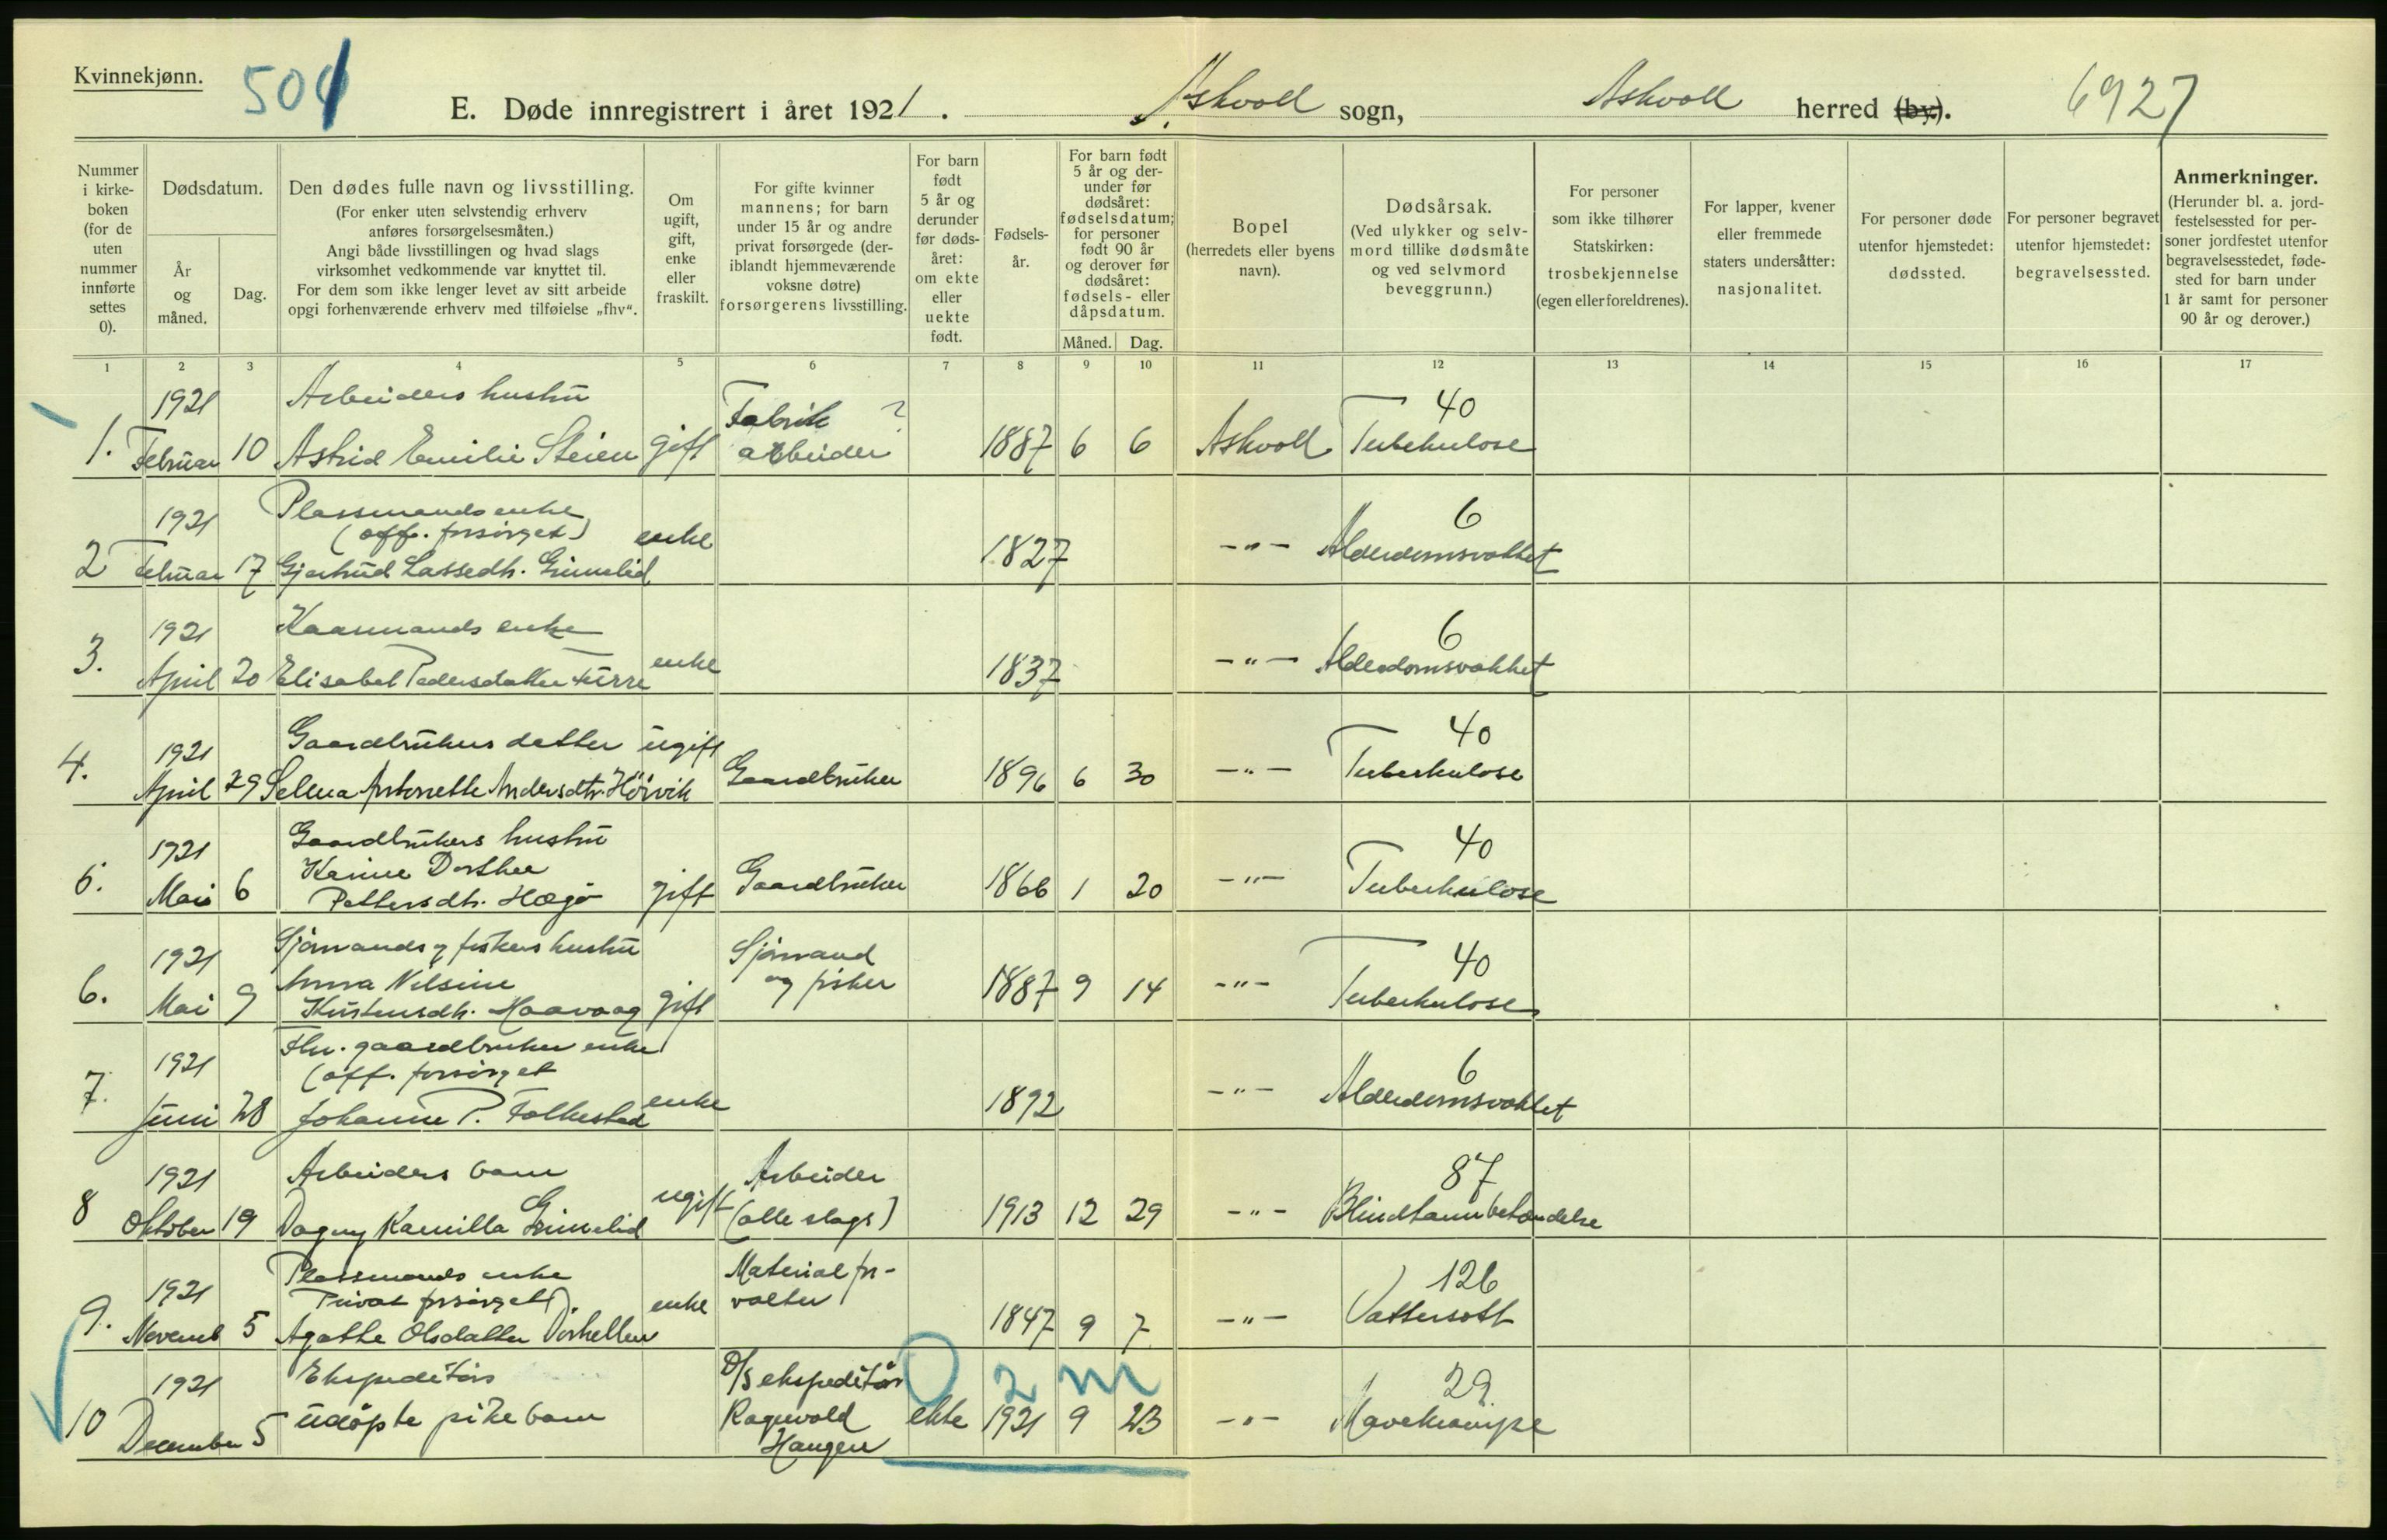 Kvinnekjønn.
501
E. Døde innregistrert i året 1921.
Askvoll sogn,
Askvoll herred (by).
6927
Nummer i kirkeboken (for de uten nummer innførte settes 0).
Dødsdatum.
År og måned.
Dag.
Den dødes fulle navn og livsstilling.
(For enker uten selvstendig erhverv anføres forsørgelsesmåten.)
Angi både livsstillingen og hvad slags virksomhet vedkommende var knyttet til.
For dem som ikke lenger levet av sitt arbeide opgi forhenværende erhverv med tilføielse „fhv“.
Om ugift, gift, enke eller fraskilt.
For gifte kvinner mannens; for barn under 15 år og andre privat forsørgede (deriblandt hjemmeværende voksne døtre) forsørgerens livsstilling.
For barn født 5 år og derunder før dødsåret: om ekte eller uekte født.
Fødselsår.
For barn født 5 år og derunder før dødsåret: fødselsdatum; for personer født 90 år og derover før dødsåret: fødsels- eller dåpsdatum.
Måned. Dag.
Bopel
(herredets eller byens navn).
Dødsårsak.
(Ved ulykker og selvmord tillike dødsmåte og ved selvmord beveggrunn.)
For personer som ikke tilhører Statskirken: trosbekjennelse (egen eller foreldrenes).
For lapper, kvener eller fremmede staters undersåtter: nasjonalitet.
For personer døde utenfor hjemstedet: dødssted.
For personer begravet utenfor hjemstedet: begravelsessted.
Anmerkninger.
(Herunder bl. a. jordfestelsessted for personer jordfestet utenfor begravelsesstedet, fødested for barn under 1 år samt for personer 90 år og derover.)
1 2 3 4 5 6 7 8 9 10 11 12 13 14 15 16 17
1921 Arbeiders hustru Fabrik ? 40
1. Februar 10 Astrid Emilie Steien gift arbeider 1887 6 6 Askvoll Tuberkulose
1921 Plassmands enke
(off. forsørget) enke 6
2 Februar 17 Gjertrud Lassedtr. Grimelid 1827 -"- Alderdomsvakhet
1921 Kaarmands enke 6
3. April 20 Elisabet Pedersdatter Fürre enke 1837 -"- Alderdomsvakhet
1921 Gaardbrukers datter ugift 40
4. April 29 Selma Antonette Andersdtr. Høivik Gaardbruker 1896 6 30 -"- Tuberkulose
1921 Gaardbrukers hustru 40
Karine Dorthea
5. Mai 6 Pettersdtr. Hægø gift Gaardbruker 1866 1 20 -"- Tuberkulose
1921 Sjømands og fiskers hustru Sjømand 40
Anna Nilsine og fisker
6. Mai 9 Kristensdtr. Haavaag gift 1887 9 14 -"- Tuberkulose
1921 Fhv. gaardbruker enke
(off. forsørget 6
7. Juni 28 Johanne P. Folkestad enke 1892 -"- Alderdomsvakhet
1921 Arbeiders barn Arbeider 87
8 Oktober 19 Dagny Kamilla Grimelid ugift (alle slags) 1913 12 29 -"- Blindtarmbetændelse
1921 Plassmands enke Material for-
Privat forsørget) enke valter 126
9. Novemb 5 Agathe Olsdatter Vorhellen 1847 9 7 -"- Vattersott
1921 Ekspeditørs D/s ekspeditør 0 2 m 29
10 December 5 udøpte pikebarn Ragnvald Haugen ekte 1921 9 23 -"- Mavekrampe